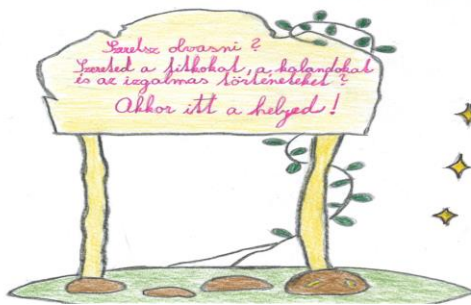 Szeretsz olvasni ?
Szereted a titkokat, a kalandokat
és az izgalmas történeteket ?
Akkor itt a helyed !